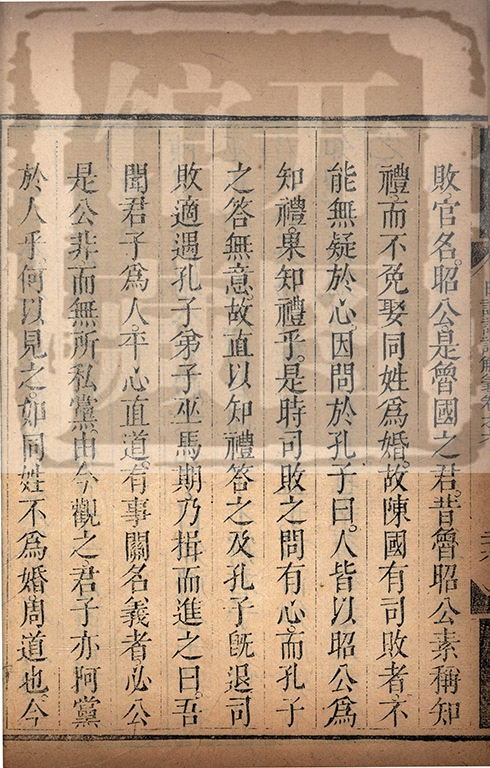 敗官名。昭公。是魯國之君。昔魯昭公素稱知
禮。而不免娶同姓爲婚。故陳國有司敗者。不
能無疑於心。因問於孔子曰。人皆以昭公爲
知禮。果知禮乎。是時司敗之問有心。而孔子
之答無意。故直以知禮答之。及孔子旣退。司
敗適遇孔子弟子巫馬期。乃揖而進之曰。吾
聞君子爲人。平心直道。有事關名義者。必公
是公非。而無所私黨。由今觀之。君子亦阿黨
於人乎。何以見之。如同姓不爲婚。周道也。今